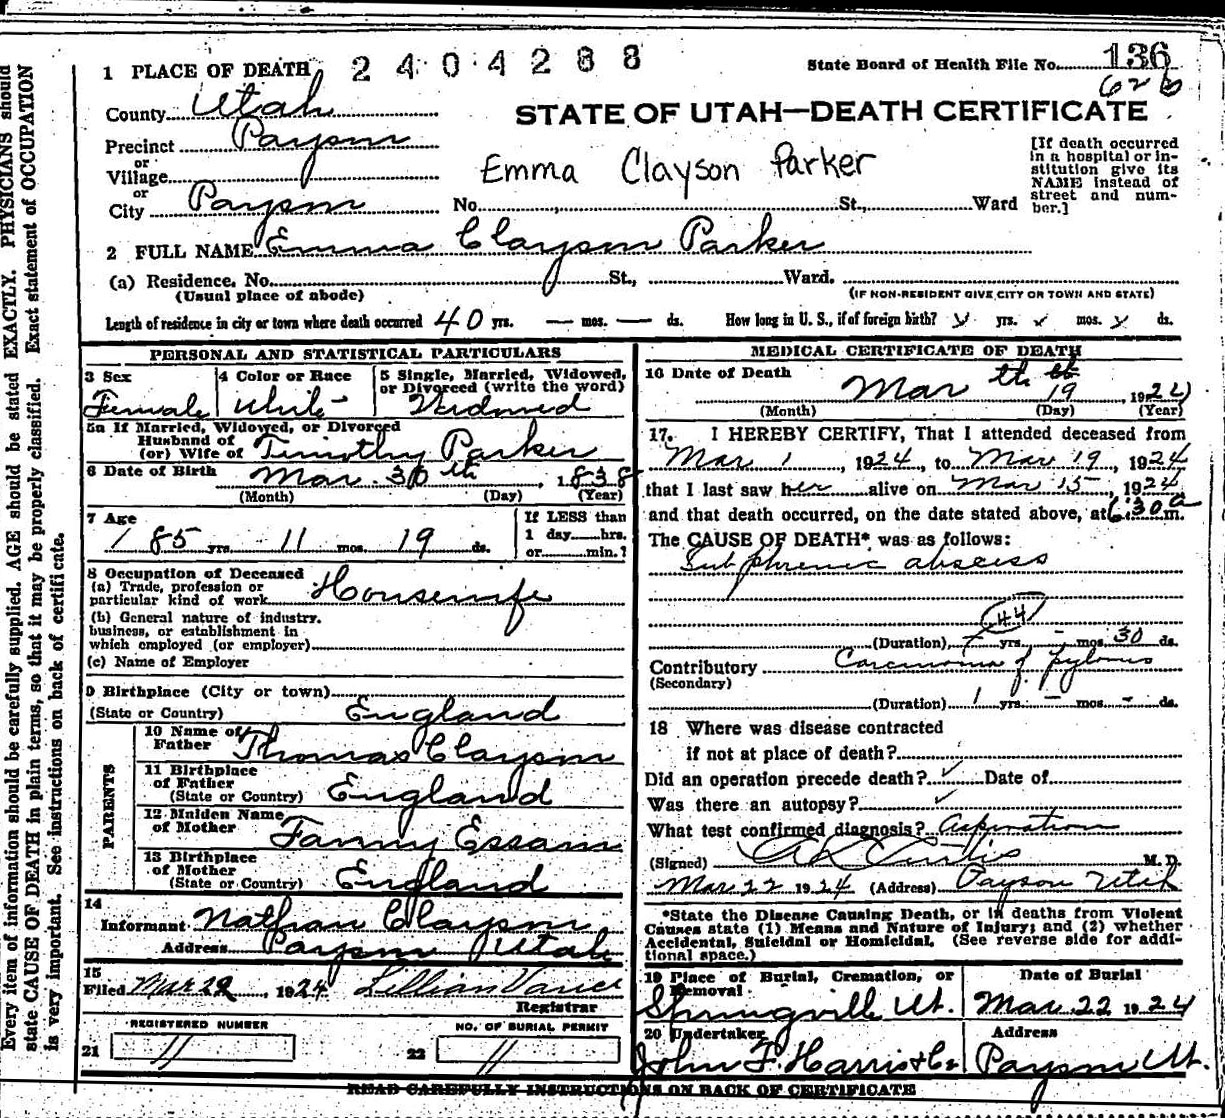 2404288
State Board of Health File No. 136
626
1 PLACE OF DEATH
County Utah
STATE OF UTAH—DEATH CERTIFICATE
Precinct Payson
or
Village
or
City Payson No. St., Ward
Emma Clayson Parker
[If death occurred
in a hospital or in-
stitution give its
NAME instead of
street and num-
ber.]
2 FULL NAME Emma Clayson Parker
(a) Residence. No. St., Ward.
(Usual place of abode) (IF NON-RESIDENT GIVE CITY OR TOWN AND STATE)
Length of residence in city or town where death occurred 40 yrs. — mos. — ds. How long in U. S., if of foreign birth? yrs. mos. ds.
PERSONAL AND STATISTICAL PARTICULARS
3 Sex 4 Color or Race 5 Single, Married, Widowed,
or Divorced (write the word)
Female White Widowed
5a If Married, Widowed, or Divorced
Husband of
(or) Wife of Timothy Parker
6 Date of Birth Mar. 30th, 1838
(Month) (Day) (Year)
7 Age If LESS than
85 yrs. 11 mos. 19 ds. 1 day hrs.
or min.?
8 Occupation of Deceased
(a) Trade, profession or
particular kind of work Housewife
(b) General nature of industry.
business, or establishment in
which employed (or employer)
(c) Name of Employer
9 Birthplace (City or town)
(State or Country) England
PARENTS
10 Name of
Father Thomas Clayson
11 Birthplace
of Father
(State or Country) England
12 Maiden Name
of Mother Fanny Essam
13 Birthplace
of Mother
(State or Country) England
14
Informant Nathan Clayson
Address Payson Utah
15
Filed Mar 22, 1924 Lillian Vance
Registrar
REGISTERED NUMBER NO. OF BURIAL PERMIT
21 11 22 11
MEDICAL CERTIFICATE OF DEATH
16 Date of Death
Mar 19th, 1924
(Month) (Day) (Year)
17. I HEREBY CERTIFY, That I attended deceased from
Mar 1, 1924, to Mar 19, 1924
that I last saw her alive on Mar 15, 1924
and that death occurred, on the date stated above, at 6:30 a m.
The CAUSE OF DEATH* was as follows:
Sub phrenic abscess
44
(Duration) yrs. – mos. 30 ds.
Contributory Carcinoma of Pylorus
(Secondary)
(Duration) 1 yrs. – mos. – ds.
18 Where was disease contracted
if not at place of death?
Did an operation precede death? ✓ Date of
Was there an autopsy? ✓
What test confirmed diagnosis? Aspiration
(Signed) Curtis M. D.
Mar 22 1924 (Address) Payson Utah
*State the Disease Causing Death, or in deaths from Violent
Causes state (1) Means and Nature of Injury; and (2) whether
Accidental, Suicidal or Homicidal. (See reverse side for addi-
tional space.)
19 Place of Burial, Cremation, or Date of Burial
Removal
Springville Ut. Mar. 22 1924
20 Undertaker Address
John F. Harris & Co Payson Ut.
READ CAREFULLY INSTRUCTIONS ON BACK OF CERTIFICATE
Every item of information should be carefully supplied. AGE should be stated EXACTLY. PHYSICIANS should
state CAUSE OF DEATH in plain terms, so that it may be properly classified. Exact statement of OCCUPATION
is very important. See instructions on back of certificate.